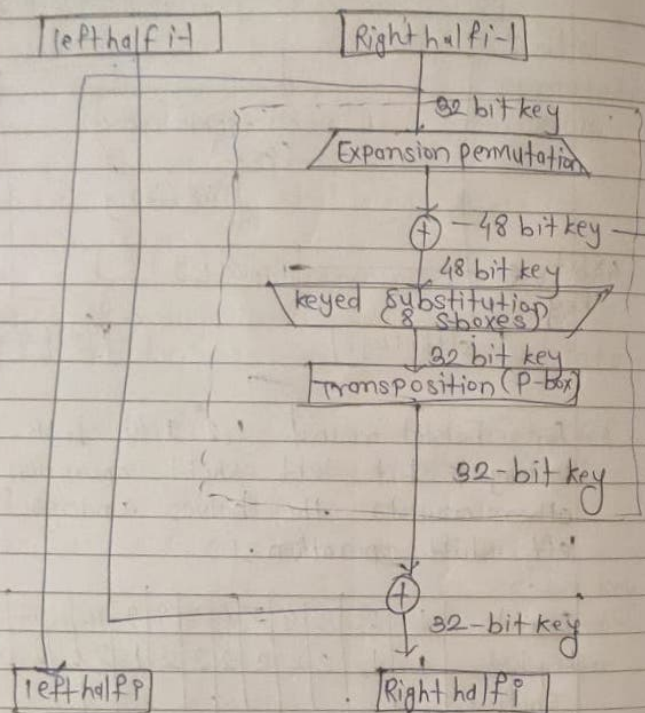 left half i-1
Right half i-1
32 bit key
Expansion permutation
48 bit key
48 bit key
keyed substitution
(8 sboxes)
32 bit key
Transposition (P-box)
32-bit key
32-bit key
left half i
Right half i